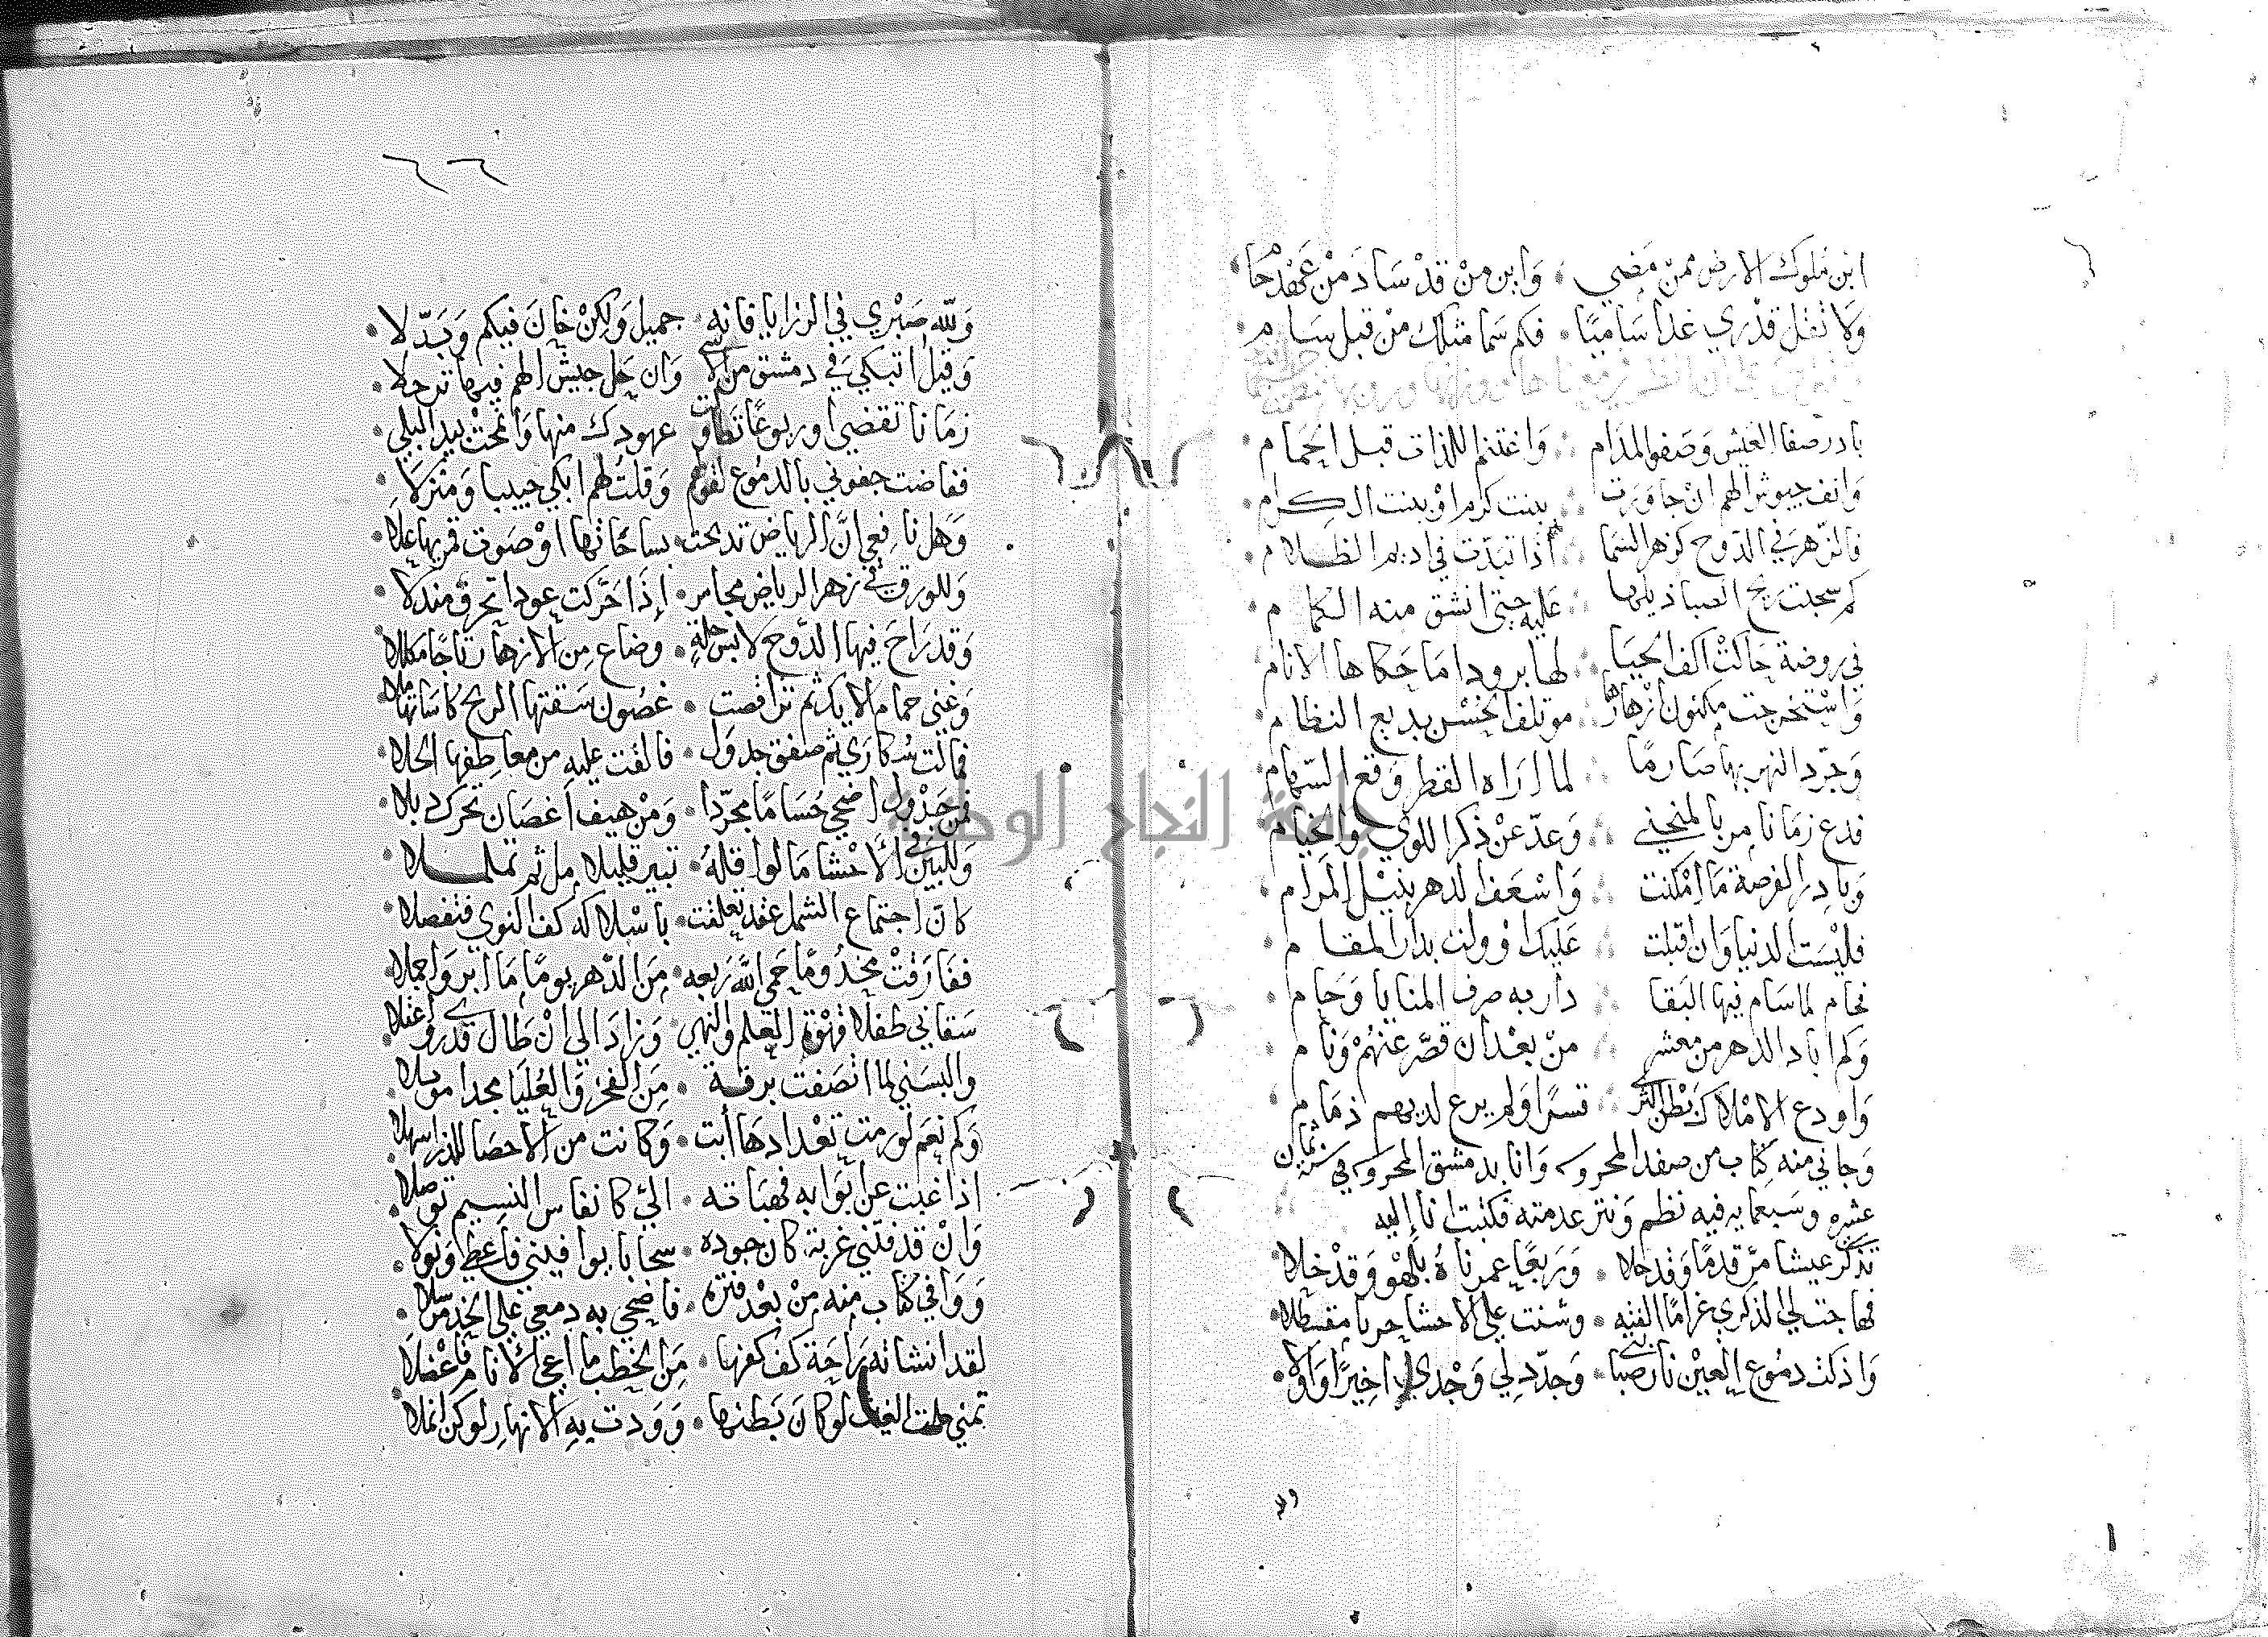 اين ملوك الارض ممن مضى . وَاين منْ قدْ سَادَ منْ عَهْد حَام
وَلا تقل قدْري غدا سَاميًا . فكم سَما مثلك منْ قبل سَام
بادر صفا العَيْش وَصَفو المدَام . وَاغتنم اللذات قبل الحمَام
وَانف جيوش الهم انْ جاوَرت . ببنت كرم اوْ ببنت الكرام
فالزّهر في الدّوح كزهر السّما . اذا تبدّت في اديم الظلام
كم سحبت ريح الصبا ذيلها . عَليه حتى انشق منه الكمام
في روضة حَاكتْ اكف الحَيَا . لها برودا مَا حَكاها الانام
وَاسْتخرجت مكنون ازْهارها . موتلف الحُسْن بديع النظام
وَجرّد النهر بها صَارمًا . لما ارَاه القطر وَقع السّهام
فدع زمَانا مر بالمنحنى . وَعدّ عنْ ذكر اللوى والخيام
وَبادِر الفرصة مَا امْكنت . وَاسْعَف الدهر بنيْل المرَام
فليْسَت الدنيا وَان اقبلت . عَليك اوْ ولت بدار المقام
فحام لما سَام فيها البَقا . دَار به صرف المنايا وَحَام
وَكم اباد الدهر من معشر . منْ بعْد ان قصّر عنهُمْ وَنام
وَاودع الاملاك بَطْن الثرى . قسرًا وَلم يرع لديهم ذمَام
وَجاني منه كتاب من صفد المحروسه وَانا بدمشق المحروسه في سنة ثمان
عشره وسَبعمايه فيه نظم وَنثر عدمته فكتبت انا اليه
تذكّر عيشا مرّ قدمًا وَقد حلا . وَرَبعًا عمرناهُ بلهْو وَقدْ خلا
فهاجت لي الذكرى غرامًا الفته . وشنت على الاحشا حربا مقسطلا
وَاذكت دمُوع العيْن نار صبابتي . وَجدّد لي وَجْدي اخيرًا وَاوّلا
ولله
٦٦
وَلله صَبْري في الرزايا فانه . جميل وَلكنْ خانَ فيكم وَبَدّلا
وَقيل اتبكي في دمشق من الاسى . وَان حَل جيش الهم فيها ترحلا
زمَانا تقضى اوربوعًا تطاولت . عهودك منها وَانمحتْ بيد البلى
ففاضت جفوني بالدمُوع لقولهم . وَقلتُ لهم ابكي حبيبا وَمنزلَا
وَهل نافعي انَّ الرياض تدبّجت . بساحَاتها اوْ صَوت قمريها علا
وَللورق في زهر الرياض مجامر . اذَا حَركت عودا تحرق مندلا
وَقد رَاحَ فيها الدَّوحَ لابس حلةٍ . وضاع من الازهار تاجًا مكللا
وَغنى حمام الايك ثم تراقصت . غصُون سَقتها الريح كاسَاتها ملا
فمالت سُكارَى ثم صفق جدوَل . فالقت عليهِ من معاطفها الحلا
فمن جَدْول اضحى حُسَامًا مجرّدا . وَمنْ هيف اغصَان تحركْ ذبلا
وَللبَيْن في الأحْشا مَا لوا قله . ثبير قليلا مل ثم تململا
كانّ اجتماع الشمل عقد تعلقت . باسْلاكه كف النوى فتفصلا
ففارَقتْ مخدُومًا حَمى الله رَبعه . منَ الدّهر يومًا مَا ابر وَاجملا
سَقاني طفلا قهْوة العلم وَالنهى . وَزادَ الى انْ طال قدْري واعتلا
والبسَني لما اتصَفت برقهِ . مِنَ الفخْر وَالعُليَا مجدا موبلا
وَكم نعَم لو رمت تعْدادهَا أبت . وَكانت من الاحصَا للذر اسهلا
اذا غبت عن ابْوَابه فهبَاته . اليّ كانفاس النسيم توصلا
وَانْ قد فتني غربة كان جوده . سحابا يوافيني فاعطى وَنولا
وَوَافى كتاب منه منْ بعْد فترة . فاضحى به دمعي على الخد مرْسلا
لقد انشاته رَاحَة كف كفها . مِنَ الخطب ما اعيى الانام فاعْضلا
تمنى ملث الغيث لو كانَ بَطنها . وَوَدت بهِ الانهار لو كن انملا
جامعة النجاح الوطنية